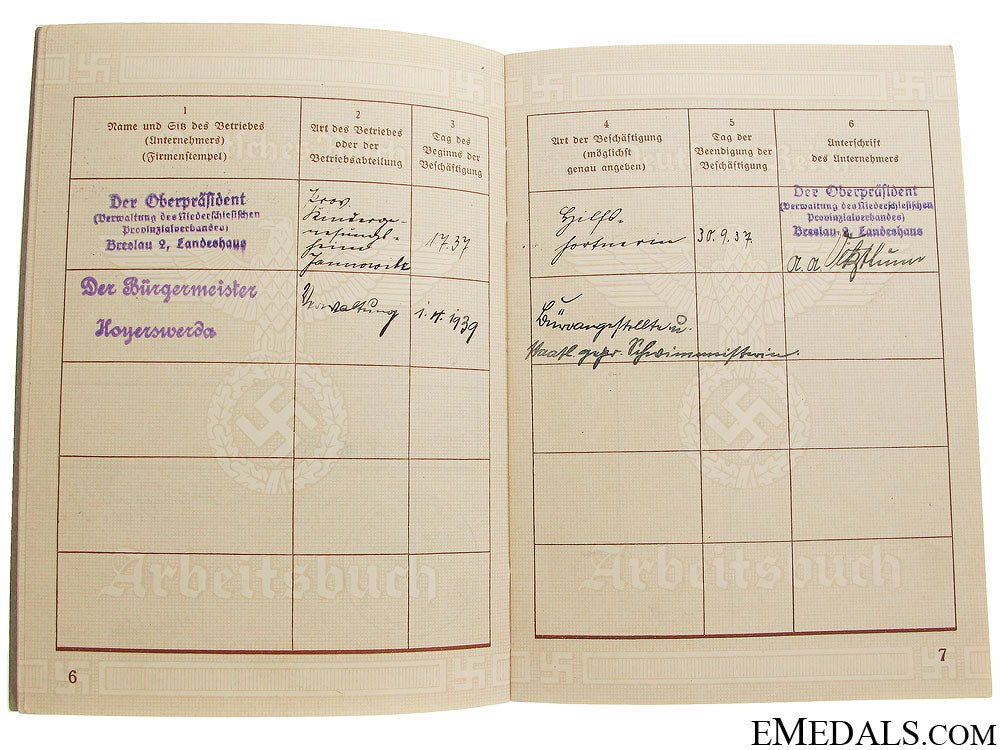 1
Name und Sitz des Betriebes
(Unternehmers)
(Firmenstempel)
2
Art des Betriebes
oder der
Betriebsabteilung
3
Tag des
Beginns der
Beschäftigung
4
Art der Beschäftigung
(möglichst
genau angeben)
5
Tag der
Beendigung der
Beschäftigung
6
Unterschrift
des Unternehmers
Der Oberpräsident
(Verwaltung des Niederschlesischen
Provinzialverbandes)
Breslau 2, Landeshaus
Prov.
Kinderge-
nesungs-
heim
Jannowitz
1.7.37
Hilfs-
30.9.37.
Der Oberpräsident
(Verwaltung des Niederschlesischen
Provinzialverbandes)
Breslau 2, Landeshaus
Der Bürgermeister
Hoyerswerda
Verwaltung
1.4.1939
Büroangestellte u.
staatl. gepr. Schwimmeisterin.
Arbeitsbuch
Arbeitsbuch
6
7
EMEDALS.COM